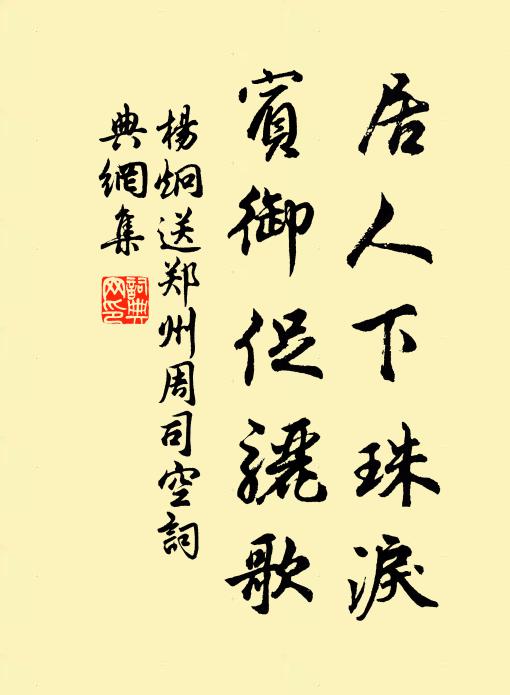 居人下珠淚
賓御促驪歌
楊炯送郑州周司空詞
典網集
詞典
网印